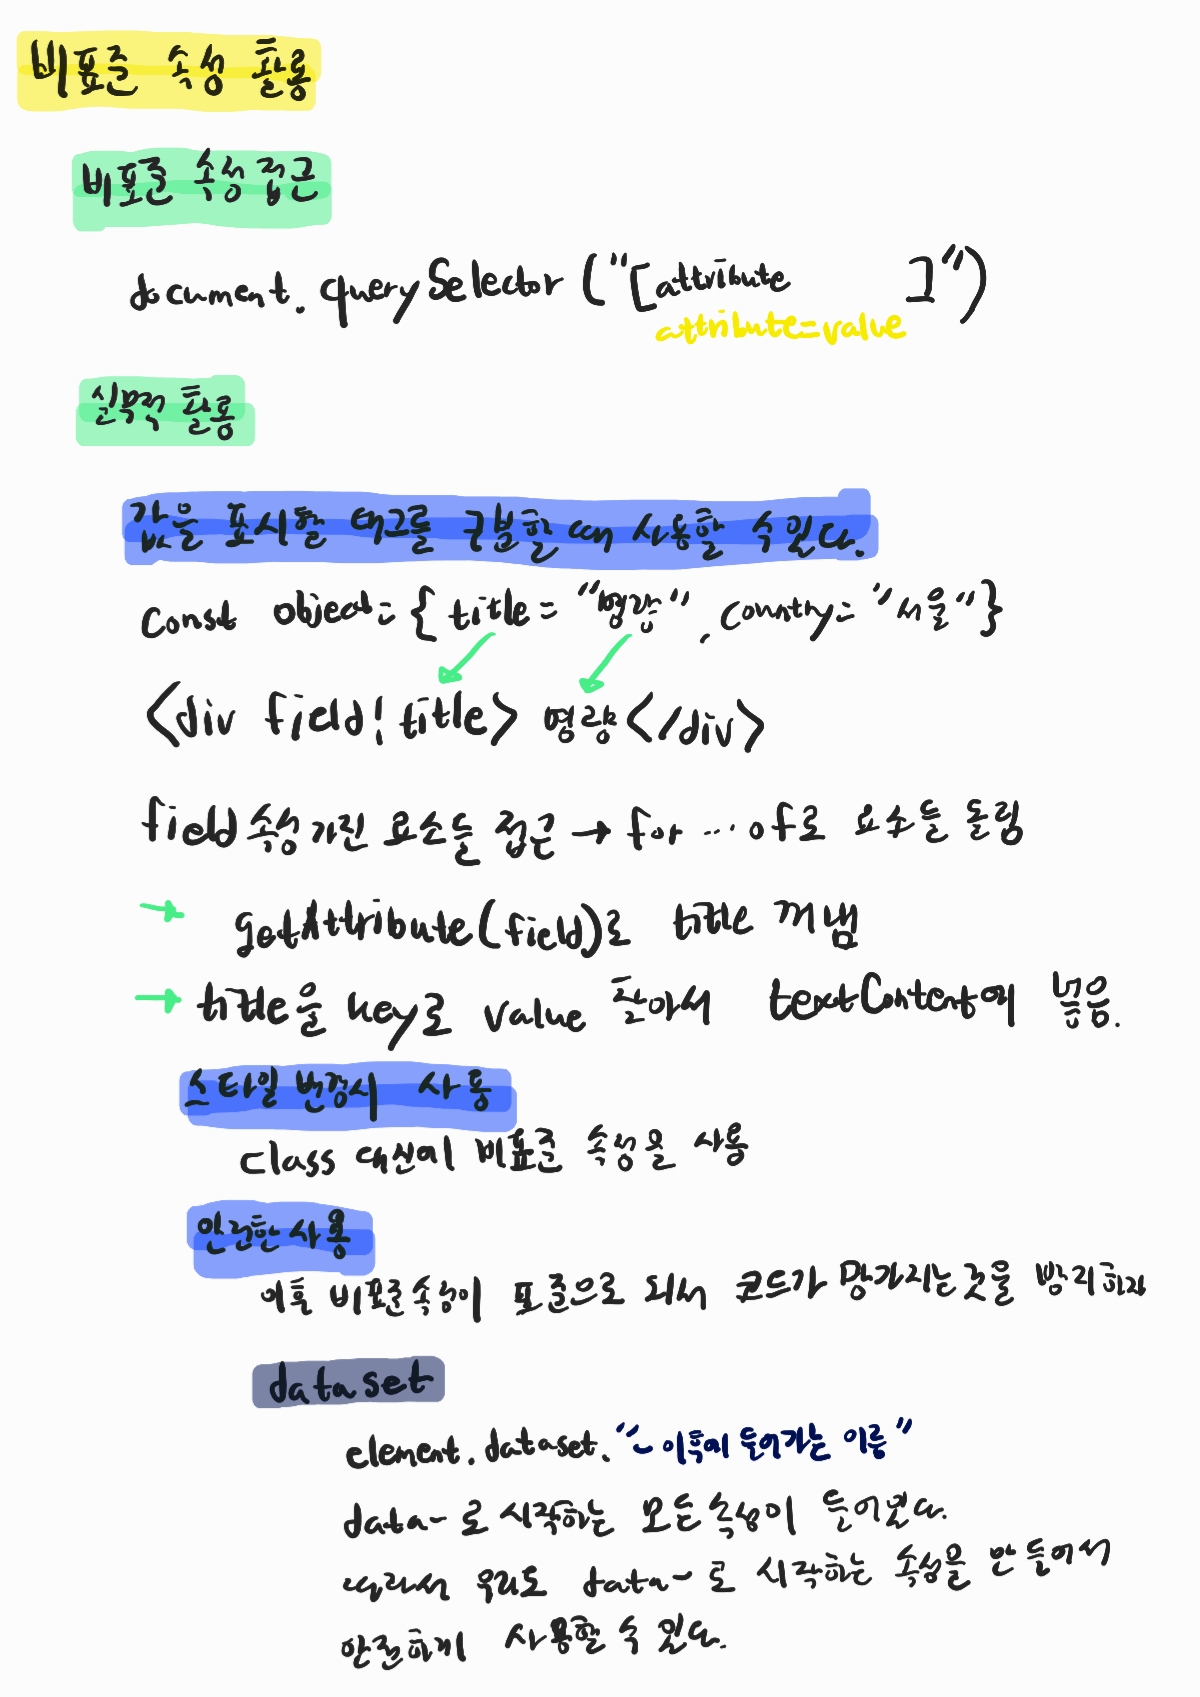 비표준 속성 활용
비표준 속성 접근
document.querySelector("[attribute ]")
attribute=value
실무적 활용
값을 표시할 태그를 구분할 때 사용할 수 있다.
const object={ title= "명량", country= "서울"}
<div field! title> 명량</div>
field 속성 가진 요소들 접근 → for ...of로 요소들 돌림
→ getAttribute(field)로 title 꺼냄
→ title을 key로 value 찾아서 textContent에 넣음.
스타일 변경시 사용
class 대신에 비표준 속성을 사용
안전한 사용
이후 비표준 속성이 표준으로 되서 코드가 망가지는 것을 방지하자
dataset
element.dataset."~ 이후에 들어가는 이름"
data- 로 시작하는 모든 속성이 들어있다.
따라서 우리도 data- 로 시작하는 속성을 만들어서
안전하게 사용할 수 있다.